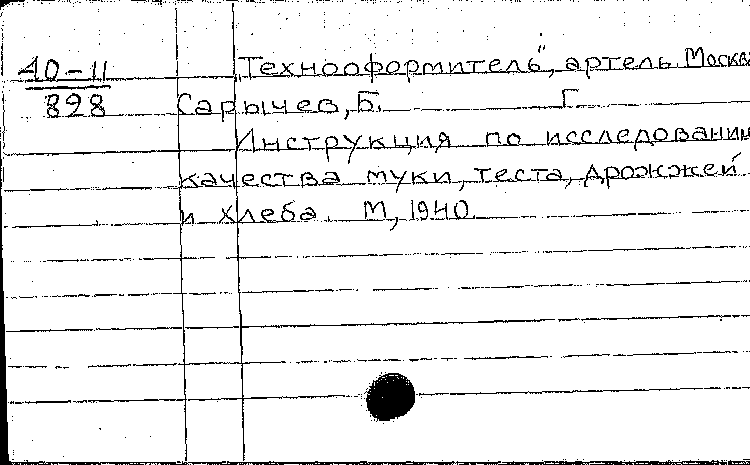 40-11
898
„Технооформитель", артель. Москва
Сарычев, Б. Г.
Инструкция по исследованию
качества муки, теста, дрожжей
и хлеба. М, 1940.